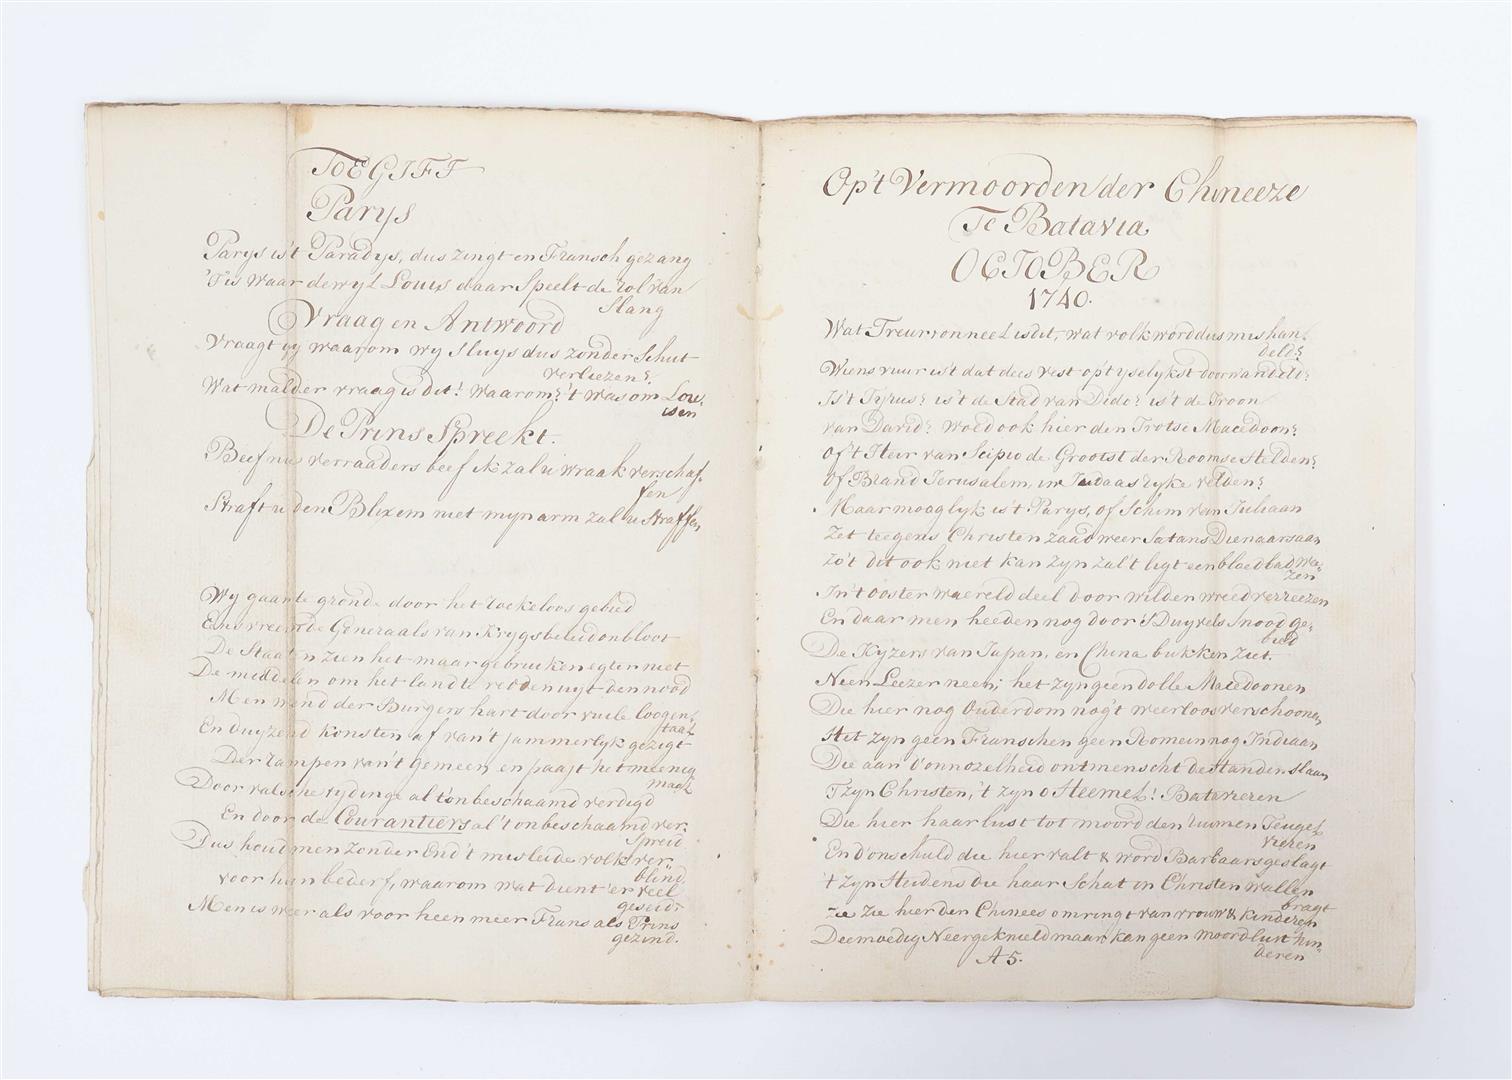 TOEGIFT
Parys
Parys is't Paradys, dus zingt en Fransch gezang
'T is waar dewyl Louis daar Speelt de rol van
Slang
Vraag en Antwoord
Vraagt gy waarom wy Sluys dus zonder Schut
verliezen?
Wat malder vraag is dit! waarom? 't was om Lou-
isen
De Prins Spreekt.
Beef nu verraaders beef ik zal u wraak verschaf-
fen
Straft u den Blixem niet myn arm zal u Straffen
Wy gaan te gronde door het roekeloos gebied
Eens vreemde Generaals van Krygsbeleid onbloot
De Staaten zien het maar gebruiken egter niet
De middelen om het land te redden uyt den nood
Men wend der Burgers hart door vuile loogen-
taal
En duyzend konsten af van't jammerlyk gezigt
Der rampen van't gemeen en paajt het meenig
maal
Door valsche tydinge al t'onbeschaamd verdigd
En door de Courantiers al 't onbeschaamd ver-
spreid
Dus houd men zonder End 't misleide volk ver-
blind
voor hun bederf, waarom wat dient 'er veel
geseid
Men is weer als voor heen meer Frans als Prins
gezind.
Op't Vermoorden der Chineeze
Te Batavia
OCTOBER
1740.
Wat Treurtonneel is dit, wat volk word dus mishan-
deld?
Wiens vuur is't dat dees vest op't yselykst doorwandeld?
Is't Tyrus? is't de Stad van Dido? is't de Troon
van David? woed ook hier den Trotse Macedoon?
Of 't Heir van Scipio de Grootst der Roomse Helden?
Of Brand Jerusalem, in Judaas ryke velden?
Maar mooglyk is't Parys, of Schim van Juliaan
Zet teegens Christen zaad weer Satans Dienaars aan
Zo't dit ook niet kan zyn zal't ligt een bloed bad we-
zen
In't ooster waereld deel door wilden wreed verreezen
En daar men heeden nog door 's Duyvels Snood ge-
bied
De Kyzers van Japan, en China bukken ziet.
Neen Leezer neen; het zyn geen dolle Macedoonen
Die hier nog Ouderdom nog't weerloos verschoonen
Het zyn geen Franschen geen Romein nog Indiaan
Die aan d'onnozelheid ontmenscht de Handen slaan
T zyn Christen, 't zyn o Heemel! Batavieren
Die hier haar lust tot moord den ruimen Teugel
vieren
En d'onschuld die hier valt & word Barbaars geslagt
't zyn Heidens die haar Schat in Christen wallen
bragt
zie zie hier den Chinees omringt van vrouw & kinderen
Deemoedig Neergeknield maar kan geen moordlust hin-
deren
A5.